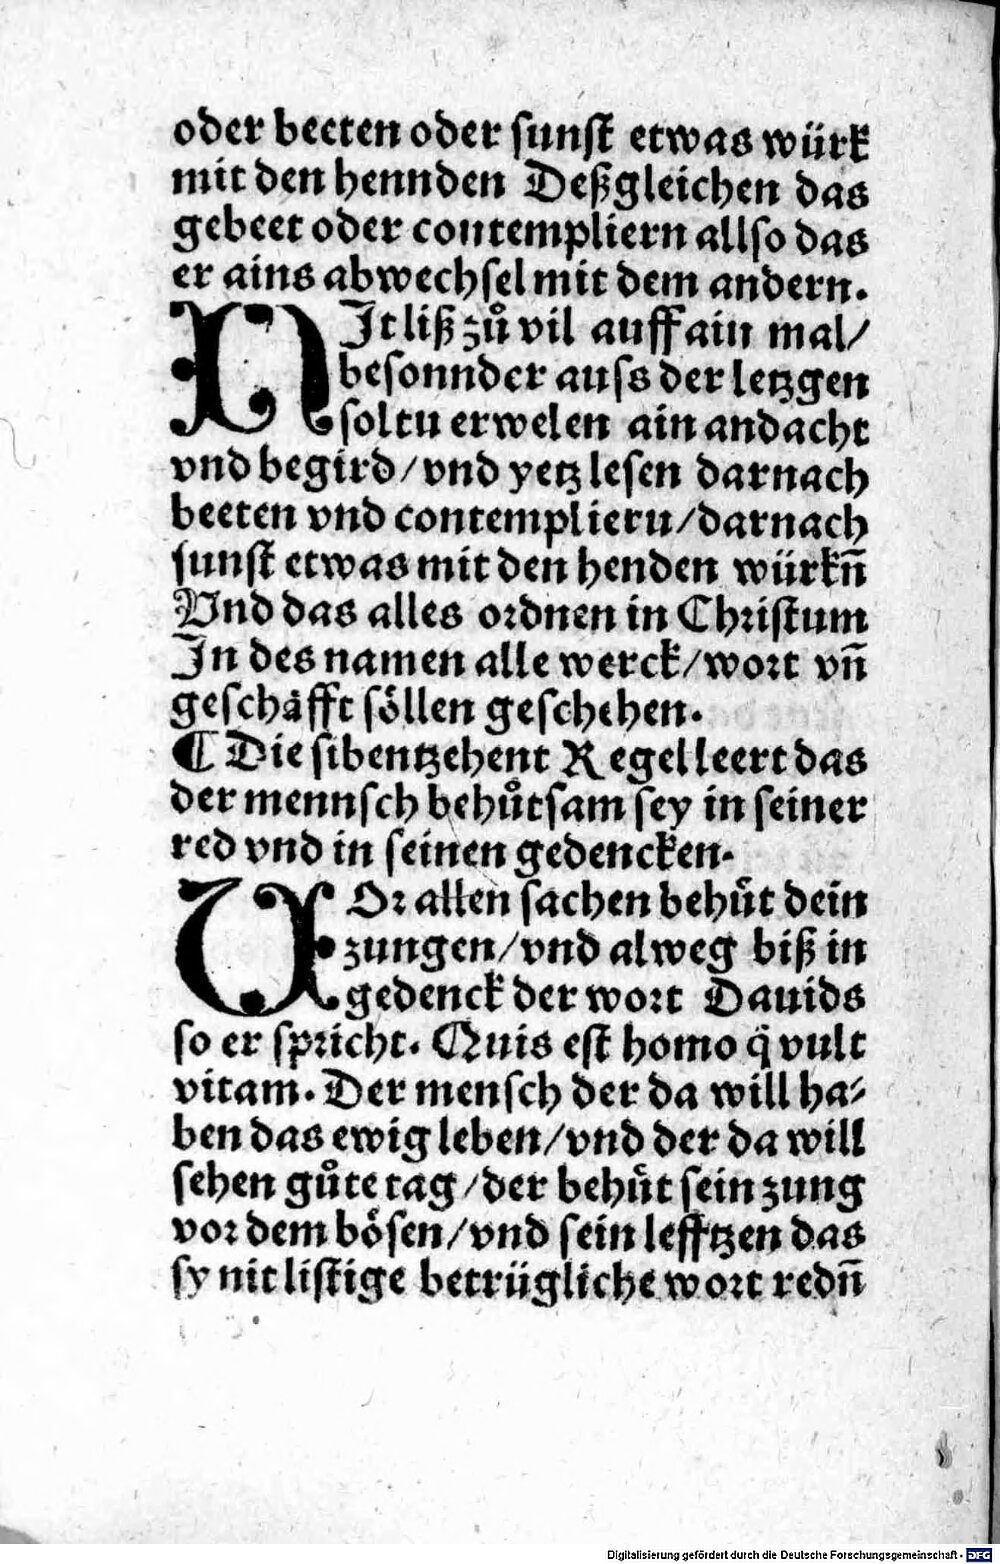 oder beeten oder sunst etwas würk
mit den hennden Deßgleichen das
gebeet oder contempliern allso das
er ains abwechsel mit dem andern.
NIt liß zů vil auff ain mal/
besonnder auss der letzgen
soltu erwelen ain andacht
vnd begird/vnd yetz lesen darnach
beeten vnd contempliern/darnach
sunst etwas mit den henden würkn̄
Vnd das alles ordnen in Christum
In des namen alle werck/wort vn̄
geschäfft söllen geschehen.
¶ Die sibentzehent Regel leert das
der mennsch behůtsam sey in seiner
red vnd in seinen gedencken.
VOr allen sachen behüt dein
zungen/vnd alweg biß in
gedenck der wort Dauids
so er spricht. Quis est homo q̄ vult
vitam. Der mensch der da will ha⸗
ben das ewig leben/vnd der da will
sehen gůte tag/der behüt sein zung
vor dem bösen/vnd sein lefftzen das
sy nit listige betrügliche wort redn̄
Digitalisierung gefördert durch die Deutsche Forschungsgemeinschaft - DFG